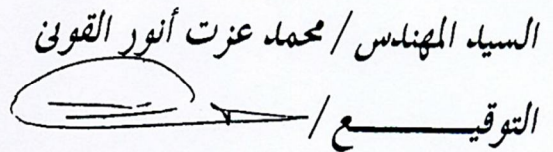 السيد المهندس / محمد عزت أنور القونى
التوقيــــــــع /